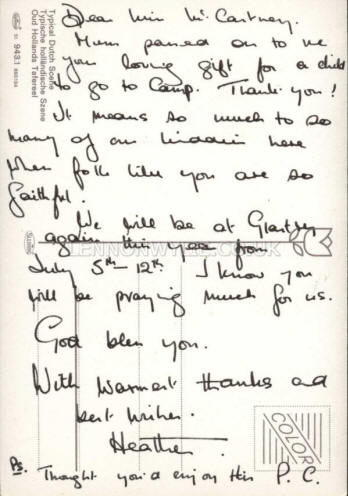 Dear Miss McCartney.
Mum passed on to me
your loving gift for a child
to go to Camp. Thank you!
It means so much to so
many of our kiddies here
when folk like you are so
faithful.
We will be at
again this year from
July 5th - 12th. I know you
will be praying much for us.
God bless you.
With warmest thanks and
best wishes.
Heather
Ps. Thought you'd enjoy this P.C.
Typical Dutch Scene
Typische holländische Szene
Oud Hollands Tafereel
943.1
COLOR